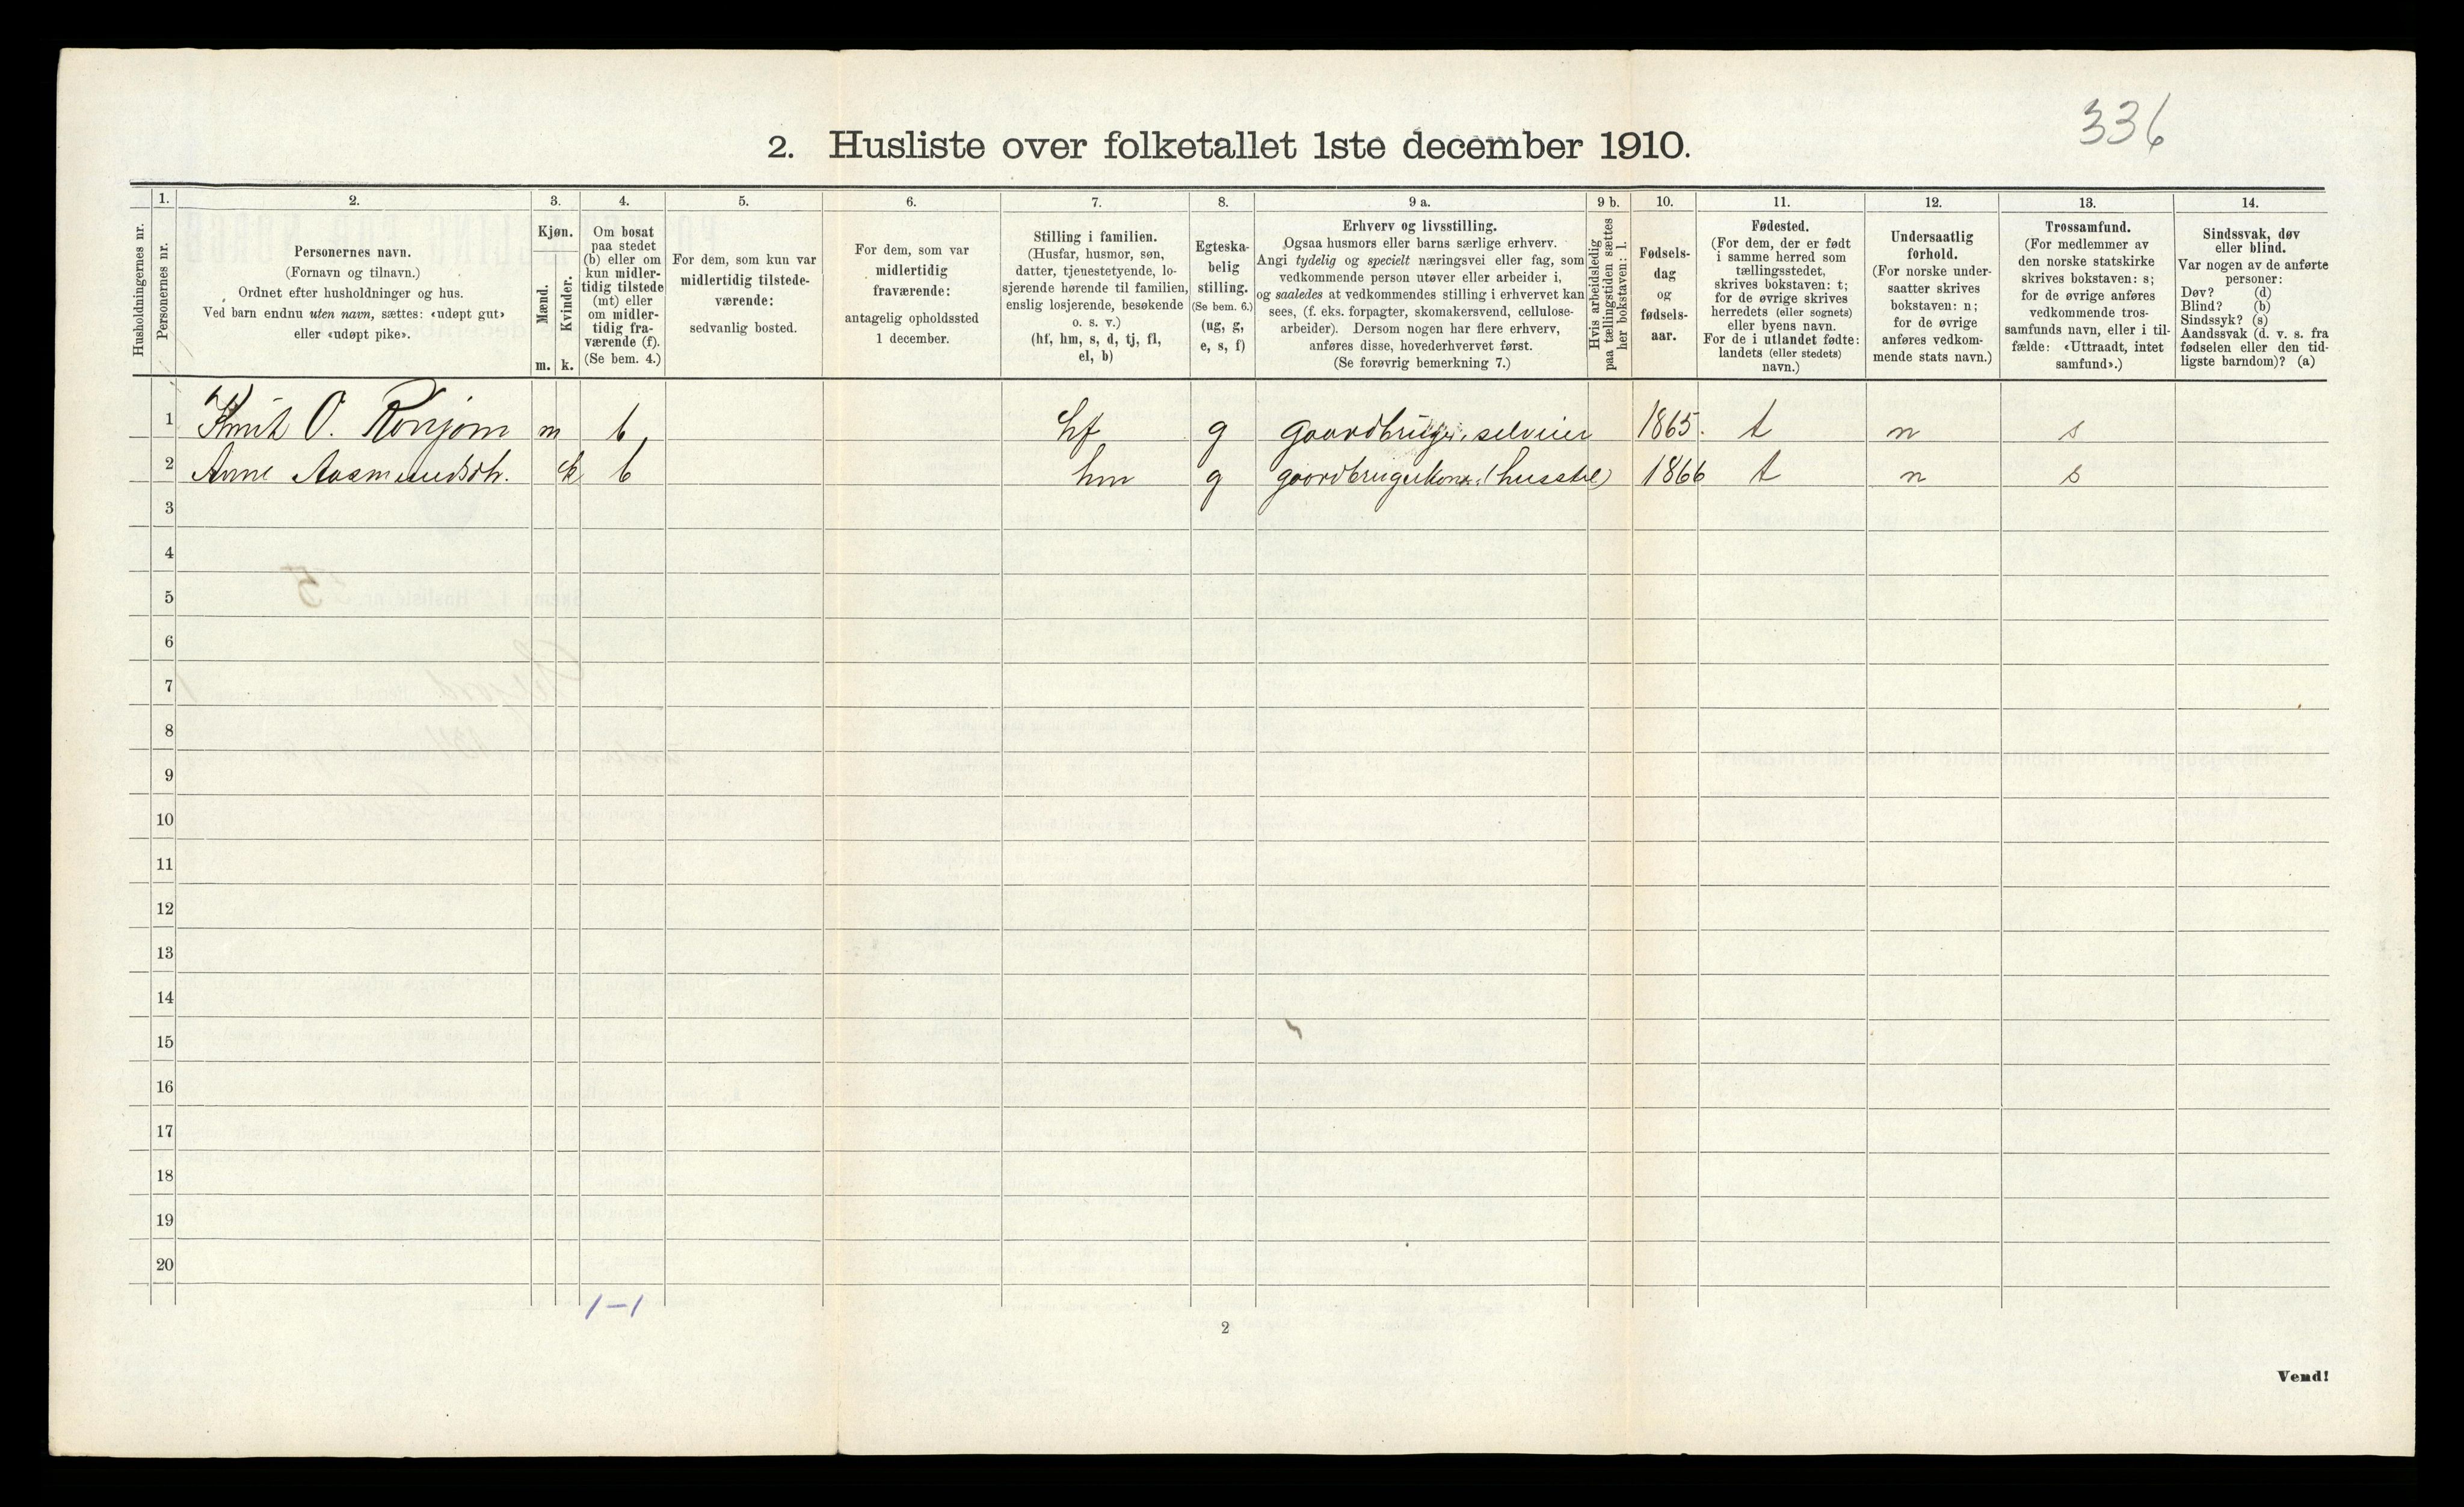 336
2. Husliste over folketallet 1ste december 1910.
Husholdningernes nr.
1.
Personernes nr.
2.
Personernes navn.
(Fornavn og tilnavn.)
Ordnet efter husholdninger og hus.
Ved barn endnu uten navn, sættes: «udøpt gut»
eller «udøpt pike».
3.
Kjøn.
Mænd.
Kvinder.
m. k.
4.
Om bosat
paa stedet
(b) eller om
kun midler-
tidig tilstede
(mt) eller
om midler-
tidig fra-
værende (f).
(Se bem. 4.)
5.
For dem, som kun var
midlertidig tilstede-
værende:
sedvanlig bosted.
6.
For dem, som var
midlertidig
fraværende:
antagelig opholdssted
1 december.
7.
Stilling i familien.
(Husfar, husmor, søn,
datter, tjenestetyende, lo-
sjerende hørende til familien,
enslig losjerende, besøkende
o. s. v.)
(hf, hm, s, d, tj, fl,
el, b)
8.
Egteska-
belig
stilling.
(Se bem. 6.)
(ug, g,
e, s, f)
9 a.
Erhverv og livsstilling.
Ogsaa husmors eller barns særlige erhverv.
Angi tydelig og specielt næringsvei eller fag, som
vedkommende person utøver eller arbeider i,
og saaledes at vedkommendes stilling i erhvervet kan
sees, (f. eks. forpagter, skomakersvend, cellulose-
arbeider). Dersom nogen har flere erhverv,
anføres disse, hovederhvervet først.
(Se forøvrig bemerkning 7.)
9 b.
Hvis arbeidsledig
paa tællingstiden sættes
her bokstaven: l.
10.
Fødsels-
dag
og
fødsels-
aar.
11.
Fødested.
(For dem, der er født
i samme herred som
tællingsstedet,
skrives bokstaven: t;
for de øvrige skrives
herredets (eller sognets)
eller byens navn.
For de i utlandet fødte:
landets (eller stedets)
navn.)
12.
Undersaatlig
forhold.
(For norske under-
saatter skrives
bokstaven: n;
for de øvrige
anføres vedkom-
mende stats navn.)
13.
Trossamfund.
(For medlemmer av
den norske statskirke
skrives bokstaven: s;
for de øvrige anføres
vedkommende tros-
samfunds navn, eller i til-
fælde: «Uttraadt, intet
samfund».)
14.
Sindssvak, døv
eller blind.
Var nogen av de anførte
personer:
Døv? (d)
Blind? (b)
Sindssyk? (s)
Aandssvak (d. v. s. fra
fødselen eller den tid-
ligste barndom)? (a)
1 Knut O. Ronjom m b hf g gaardbruger, selveier 1865. t n s
2 Anne Aasmundsdt. k b hm g gaardbrugerkone (husstel) 1866 t n s
3
4
5
6
7
8
9
10
11
12
13
14
15
16
17
18
19
20
1-1
2
Vend!